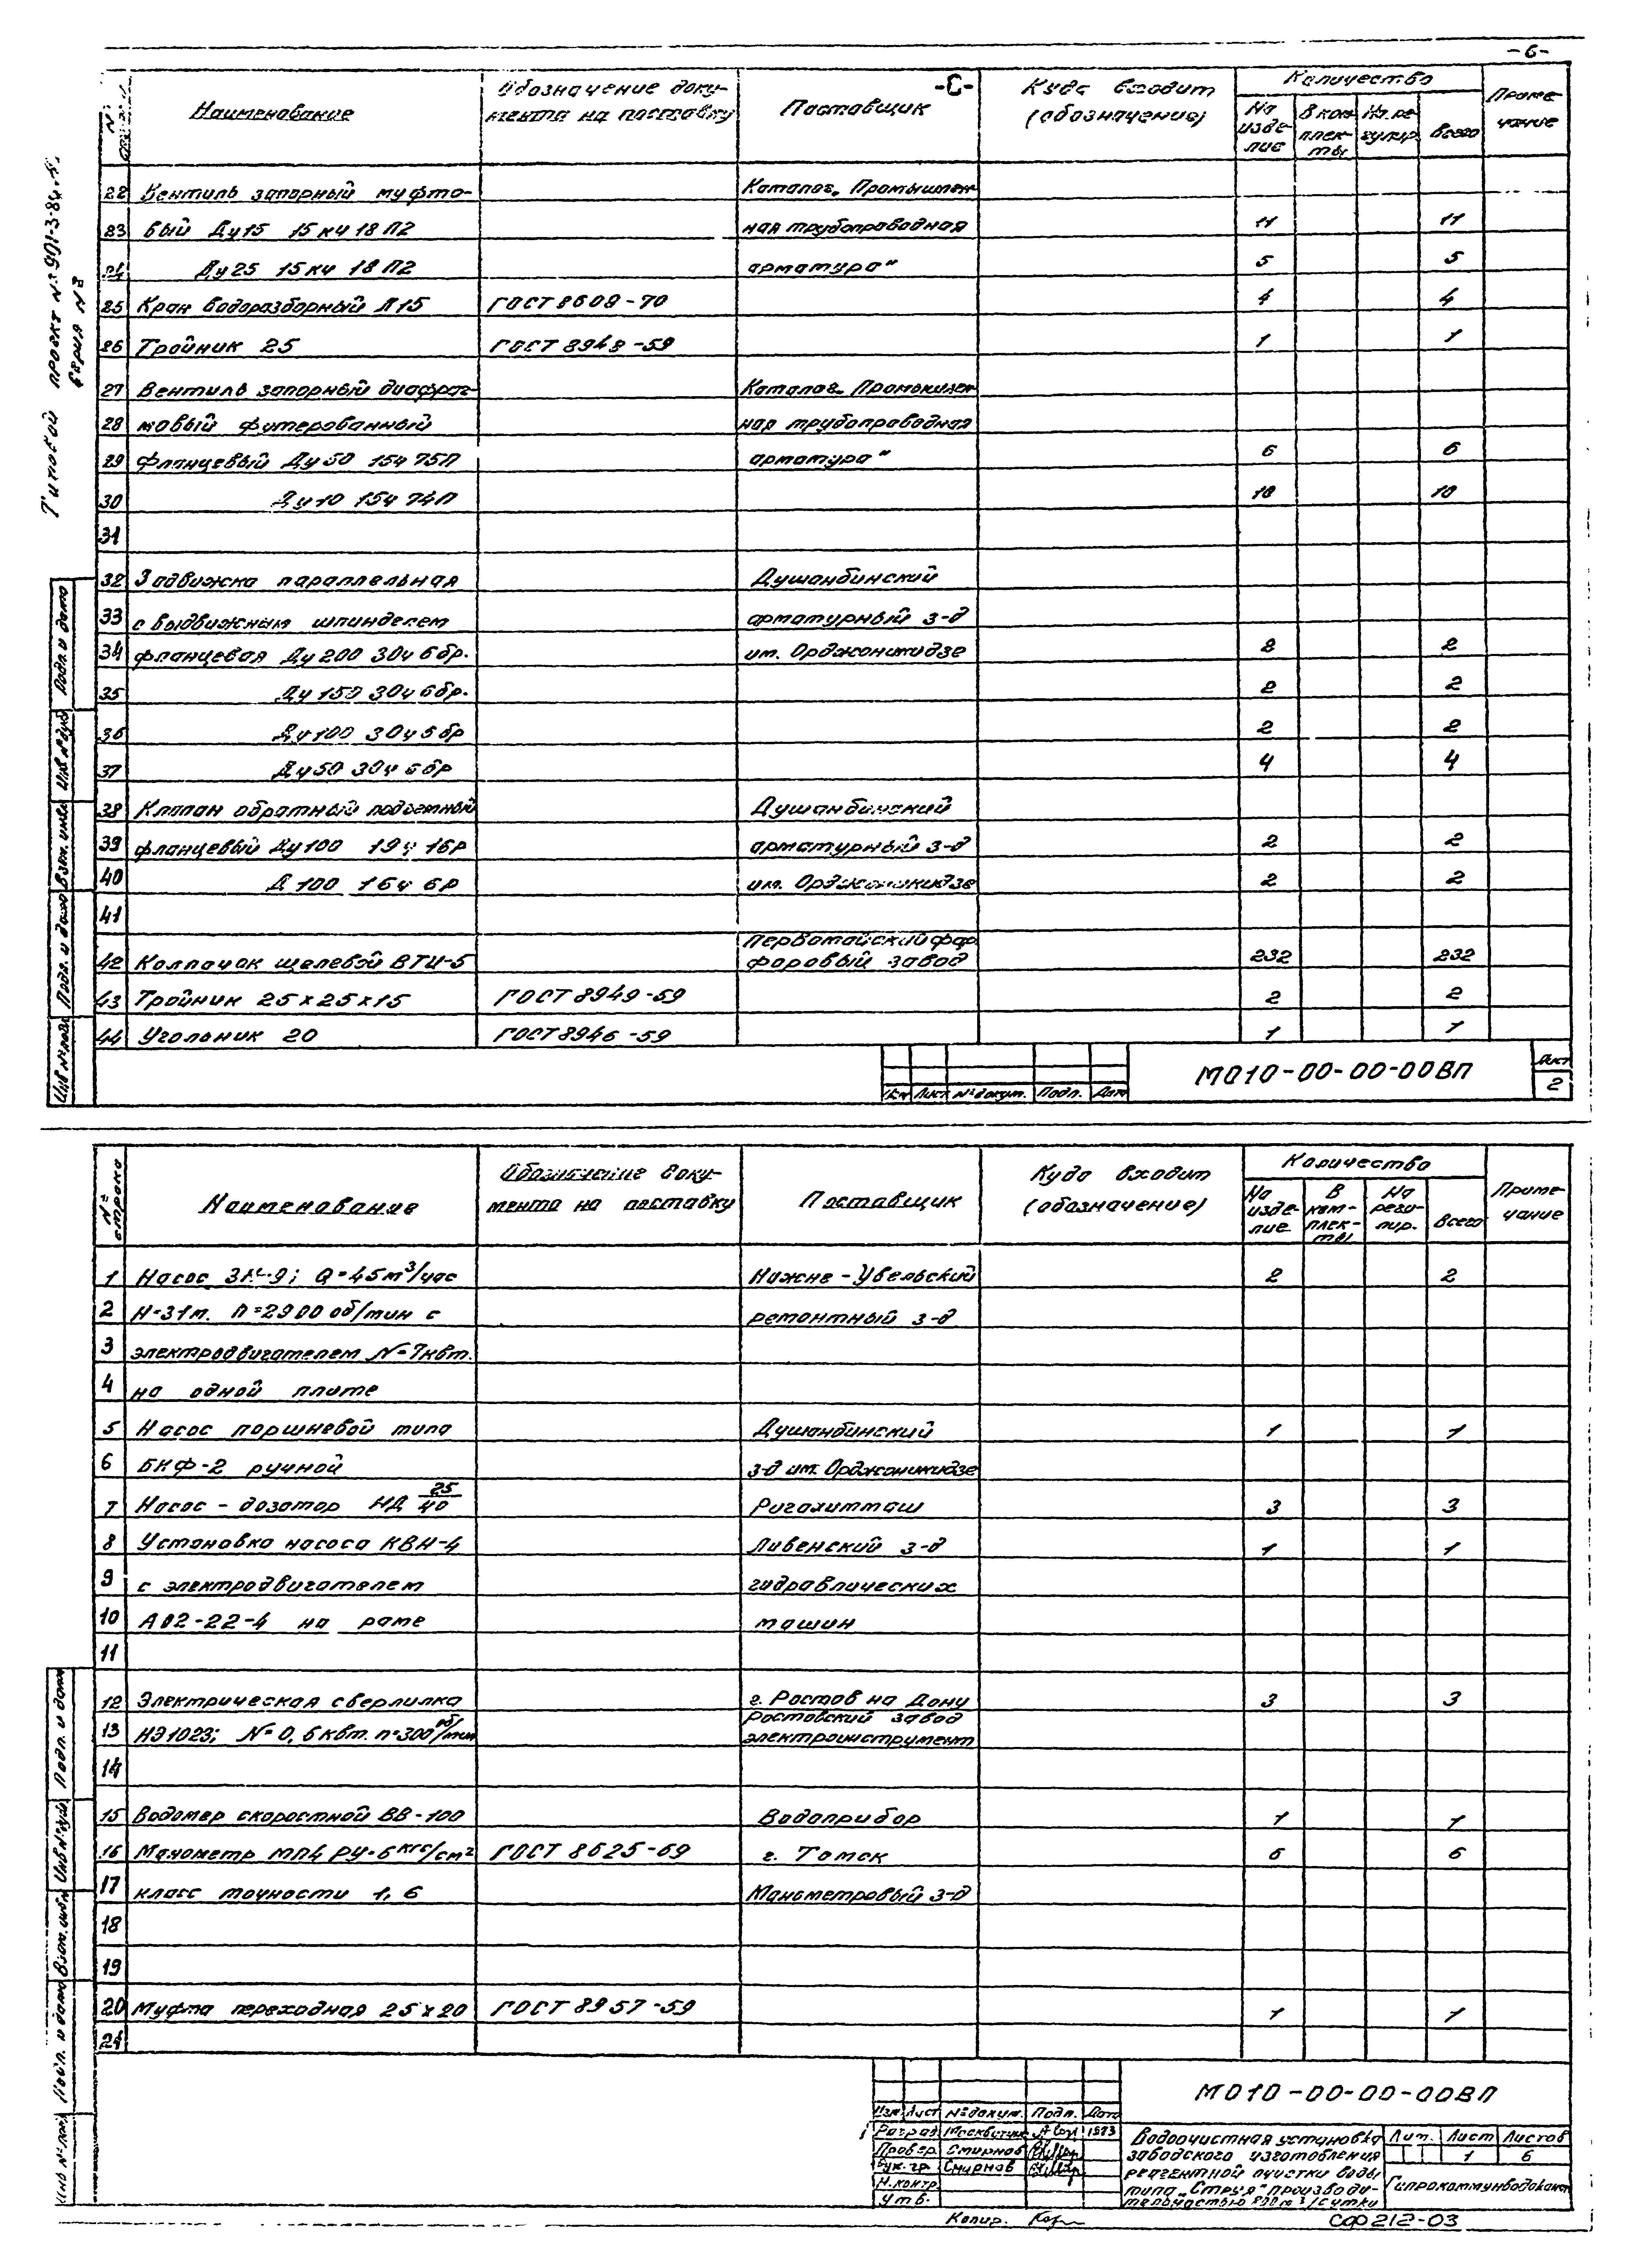 -6-
Наименование
Обозначение доку-
мента на поставку
Поставщик
-С-
Куда входит
(обозначение)
Количество
На изде-лие
В ком-плек-ты
На ре-гулир.
Всего
Приме-чание
22 Вентиль запорный муфто- Каталог „Промышлен
23 вый Ду15 15кч 18П2 ная трубопроводная 11 11
24 Ду25 15кч 18П2 арматура" 5 5
25 Кран водоразборный Л15 ГОСТ 8608-70 4 4
26 Тройник 25 ГОСТ 8948-59 1 1
27 Вентиль запорный диафраг- Каталог „Промышлен
28 мовый футерованный ная трубопроводная
29 фланцевый Ду50 15ч 75П арматура" 6 6
30 Ду10 15ч 74П 10 10
31
32 Задвижка параллельная Душанбинский
33 с выдвижным шпинделем арматурный з-д
34 фланцевая Ду200 30ч 6бр. им. Орджоникидзе 2 2
35 Ду150 30ч 6бр. 2 2
36 Ду100 30ч 6бр 2 2
37 Ду50 30ч 6бр 4 4
38 Клапан обратный подъемный Душанбинский
39 фланцевый Ду100 19ч 16р арматурный з-д 2 2
40 Д 100 16ч 6р им. Орджоникидзе 2 2
41
Первомайский фар
42 Колпачок щелевой ВТИ-5 форовый завод 232 232
43 Тройник 25х25х15 ГОСТ 8949-59 2 2
44 Угольник 20 ГОСТ 8946-59 1 1
Изм Лист № докум. Подп. Дат
М010-00-00-00ВП
Лист
2
Типовой проект № 901-3-84
Подп. и дата
Инв № дуб
Взам. инв
Подп. и дата
Инв № подл
№ строки
Наименование
Обозначение доку-
мента на поставку
Поставщик
Куда входит
(обозначение)
Количество
На изде-лие
В ком-плек-ты
На регу-лир.
Всего
Приме-чание
1 Насос 3К-9; Q=45м³/час Нижне-Увельский 2 2
2 Н=31м. n=2900 об/мин с ремонтный з-д
3 электродвигателем N=7квт.
4 на одной плите
5 Насос поршневой типа Душанбинский 1 1
6 БКФ-2 ручной з-д им. Орджоникидзе
7 Насос-дозатор НД 25/40 Ригахиммаш 3 3
8 Установка насоса КВН-4 Ливенский з-д 1 1
9 с электродвигателем гидравлических
10 А02-22-4 на раме машин
11
12 Электрическая сверлилка г. Ростов на Дону 3 3
Ростовский завод
13 НЭ1023; N=0,6квт. n=300 об/мин электроинструмент
14
15 Водомер скоростной ВВ-100 Водоприбор 1 1
16 Манометр МП4 РУ-6 кгс/см² ГОСТ 8625-69 г. Томск 6 6
17 класс точности 1,6 Манометровый з-д
18
19
20 Муфта переходная 25х20 ГОСТ 8957-59 1 1
21
Изм Лист № докум. Подп. Дата
М010-00-00-00ВП
Разраб 1973
Провер. Смирнов
Рук. гр Смирнов
Н.контр
Утв.
Водоочистная установка
заводского изготовления
реагентной очистки воды
типа „Струя" производи-
тельностью 800 м³/сутки
Лит. Лист Листов
1 6
Гипрокоммунводоканал
Подп. и дата
Инв № дубл
Взам. инв. №
Подп. и дата
Инв № подл
Копир.
СФ212-03